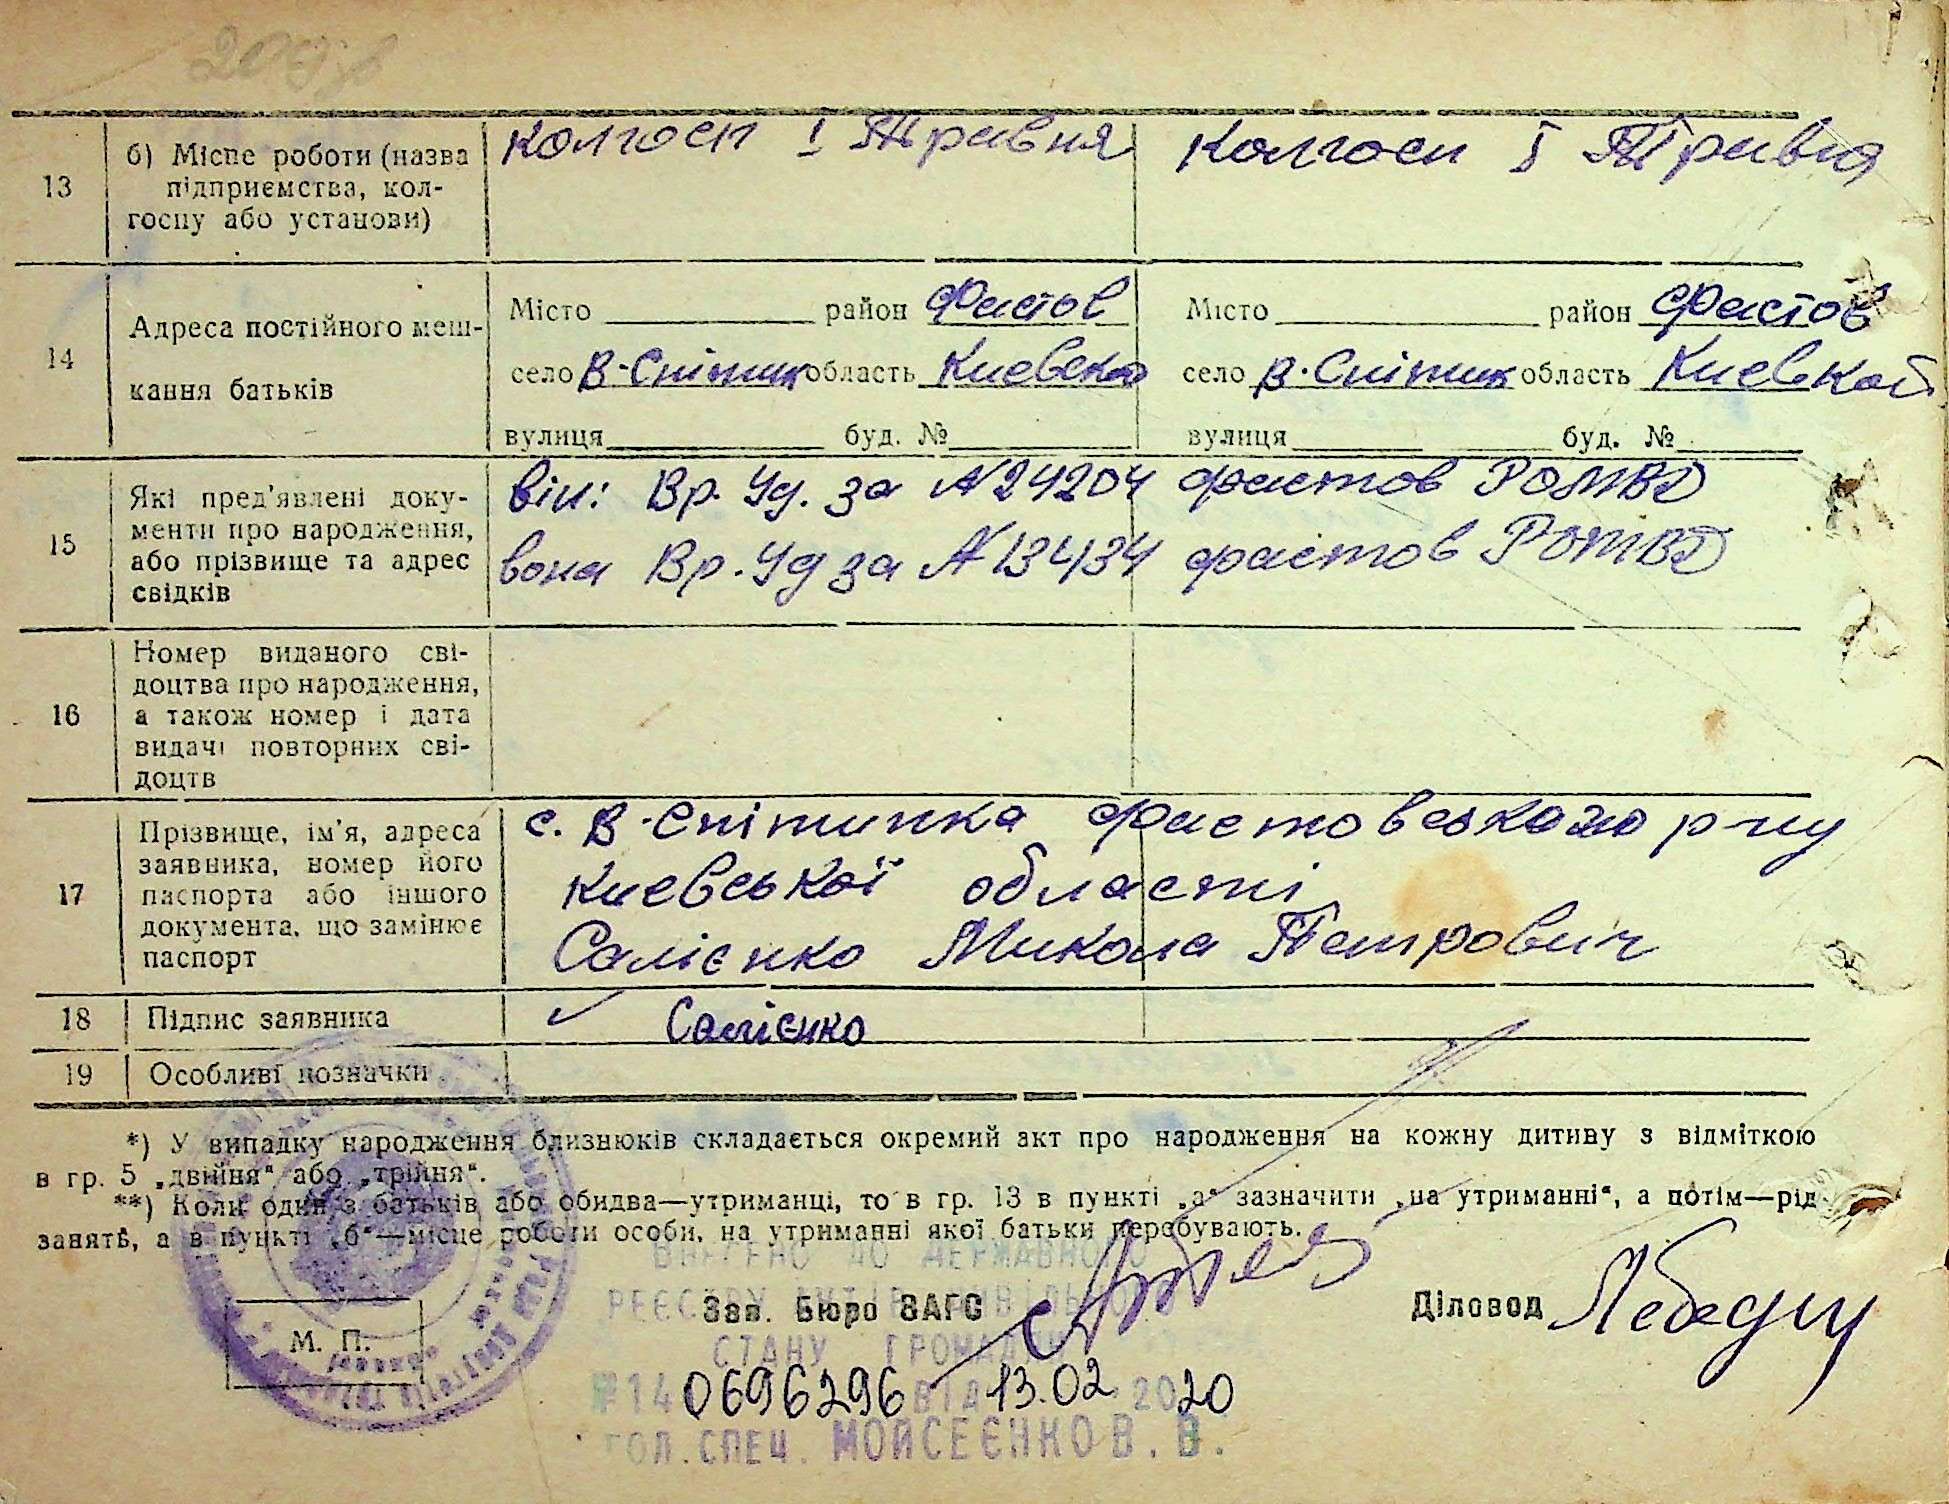 13 б) Місце роботи (назва підприємства, кол-
госпу або установи)
колгосп I Травня колгосп I Травня
14 Адреса постійного меш-
кання батьків
Місто район Фастов Місто район Фастов
село В-Снітин область Киевской село В-Снітин область Киевкой
вулиця буд. № вулиця буд. №
15 Які пред'явлені доку-
менти про народження,
або прізвище та адрес
свідків
він: Вр. Уд. за №24204 Фастов РОМВД
вона Вр. Уд за №13434 Фастов РОМВД
16 Номер виданого сві-
доцтва про народження,
а також номер і дата
видачі повторних сві-
доцтв
17 Прізвище, ім'я, адреса
заявника, номер його
паспорта або іншого
документа, що замінює
паспорт
с. В-Снітинка Фастовського р-ну
Киевської області
Салієнко Микола Петрович
18 Підпис заявника Салієнко
19 Особливі позначки
*) У випадку народження близнюків складається окремий акт про народження на кожну дитину з відміткою
в гр. 5 „двійня“ або „трійня“.
**) Коли один з батьків або обидва—утриманці, то в гр. 13 в пункті „а“ зазначити „на утриманні“, а потім—рід
занять, а в пункті „б“—місце роботи особи, на утриманні якої батьки перебувають.
ВНЕСЕНО ДО ДЕРЖАВНОГО
РЕЄСТРУ АКТІВ ЦИВІЛЬНОГО
Зав. Бюро ЗАГС Діловод
СТАНУ ГРОМАДЯН
М. П.
№140696296 ВІД 13.02 2020
ГОЛ.СПЕЦ. МОЙСЕЄНКО В.В.